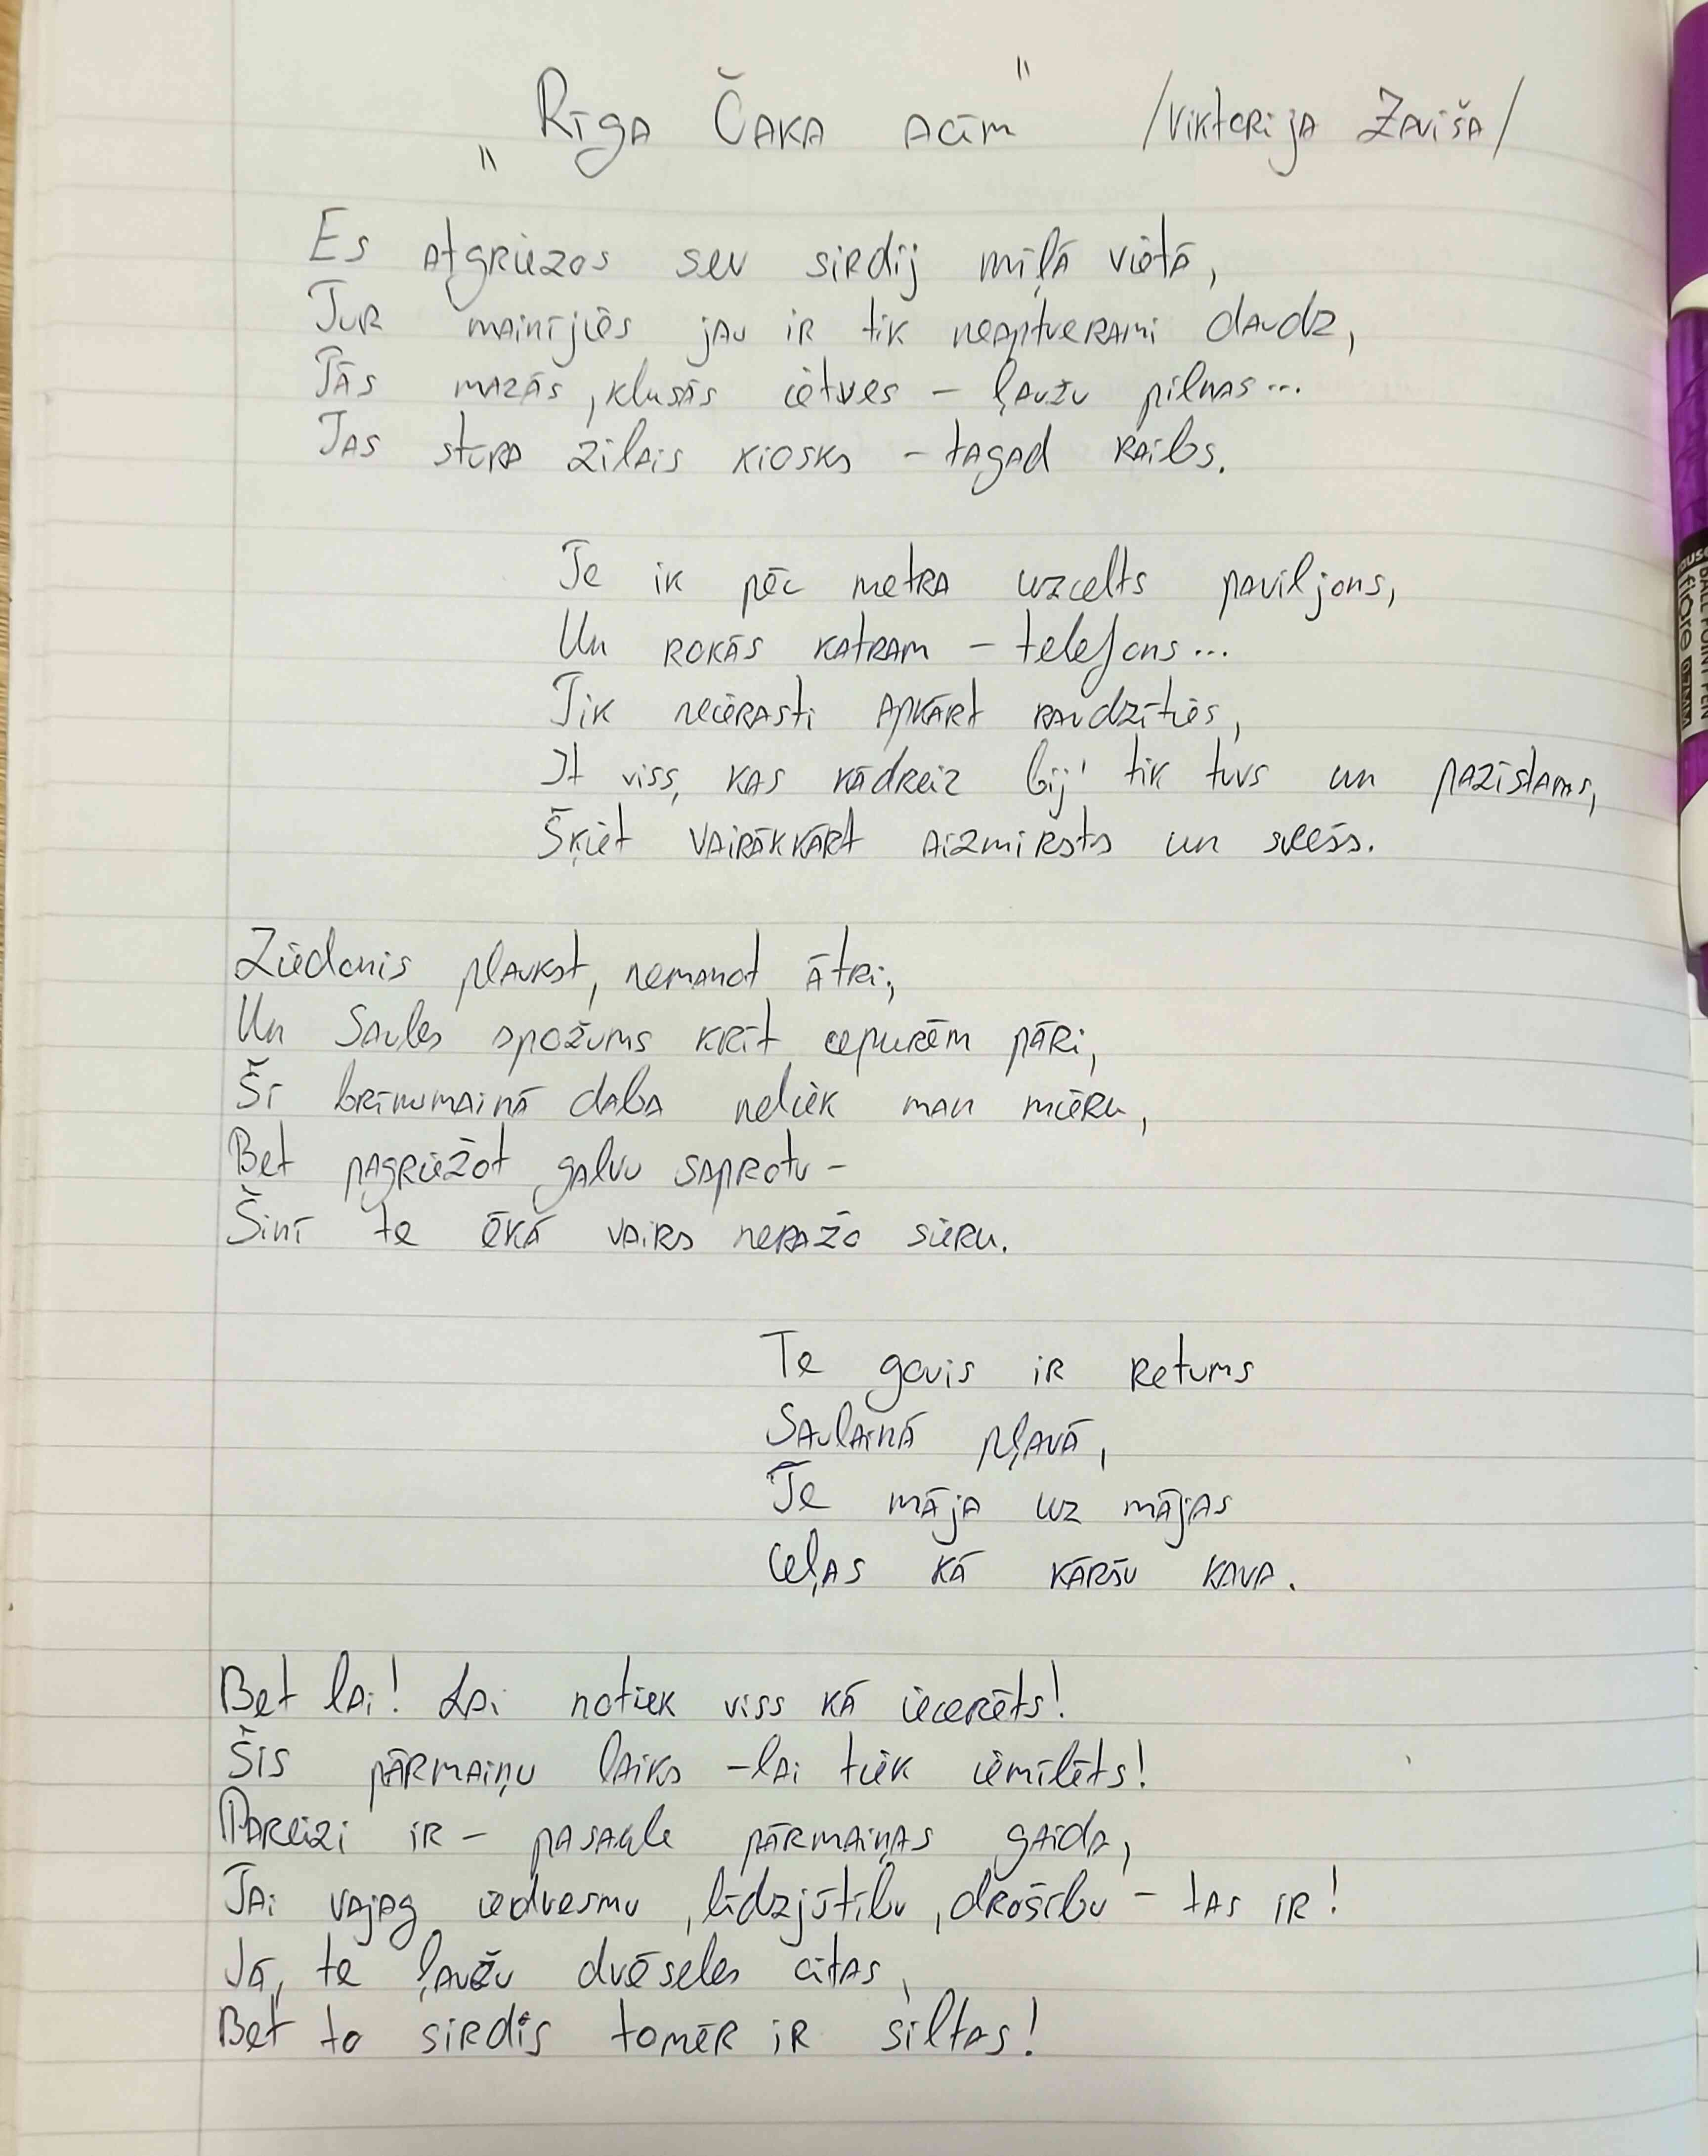 „Rīga Čaka acīm" /Viktorija Zaviša/
Es atgriezos sev sirdij mīļā vietā,
Tur mainījies jau ir tik neaptverami daudz,
Tās mazās, klusās ietves - ļaužu pilnas...
Tas stūra zilais kiosks - tagad raibs.
Te ik pēc metra uzcelts paviljons,
Un rokās katram - telefons...
Tik neierasti apkārt raudzīties,
It viss, kas kādreiz bij' tik tuvs un pazīstams,
Šķiet vairākkārt aizmirsts un svešs.
Ziedonis plaukst, nemanot ātri,
Un Saules spožums krīt cepurēm pāri,
Šī brīnumainā daba neliek man mieru,
Bet pagriežot galvu saprotu -
Šinī te ēkā vairs neražo sieru.
Te govis ir retums
Saulainā pļavā,
Te māja uz mājas
Ceļas kā kāršu kava.
Bet lai! Lai notiek viss kā iecerēts!
Šis pārmaiņu laiks - lai tiek iemīlēts!
Pareizi ir - pasaule pārmaiņas gaida,
Tai vajag iedvesmu, līdzjūtību, drošību - tas ir!
Jā, te ļaužu dvēseles citas,
Bet to sirdis tomēr ir siltas!
fiore
BALLPOINT PEN